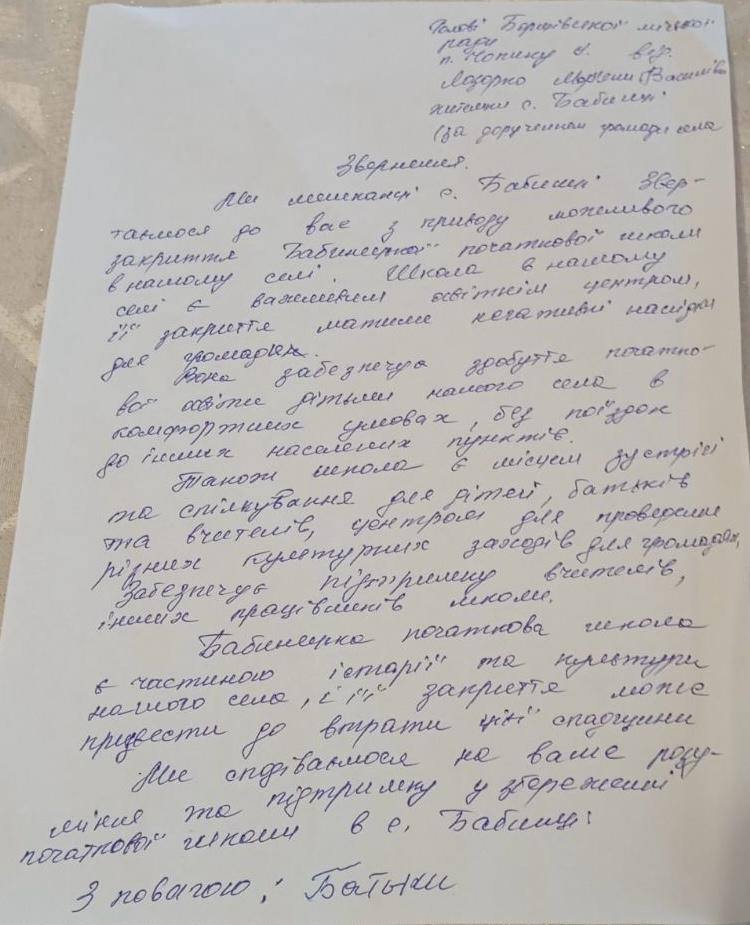 Голові Борщівської міської
ради
п. Чопику В. від
Лазорко Марії Василівни
жительки с. Бабинці
(за дорученням громади села
Звернення.
Ми мешканці с. Бабинці звер-
таємося до вас з приводу можливого
закриття Бабинецької початкової школи
в нашому селі. Школа в нашому
селі є важливим освітнім центром,
її закриття матиме негативні наслідки
для громади.
Вона забезпечує здобуття початко-
вої освіти дітьми нашого села в
комфортних умовах, без поїздок
до інших населених пунктів.
Також школа є місцем зустрічі
та спілкування для дітей, батьків
та вчителів, центром для проведення
різних культурних заходів для громади,
Забезпечує підтримку вчителів,
інших працівників школи.
Бабинецька початкова школа
є частиною історії та культури
нашого села, і її закриття може
призвести до втрати цієї спадщини
Ми сподіваємося на ваше розу-
міння та підтримку у збереженні
початкової школи в с. Бабинці
З повагою: Батьки